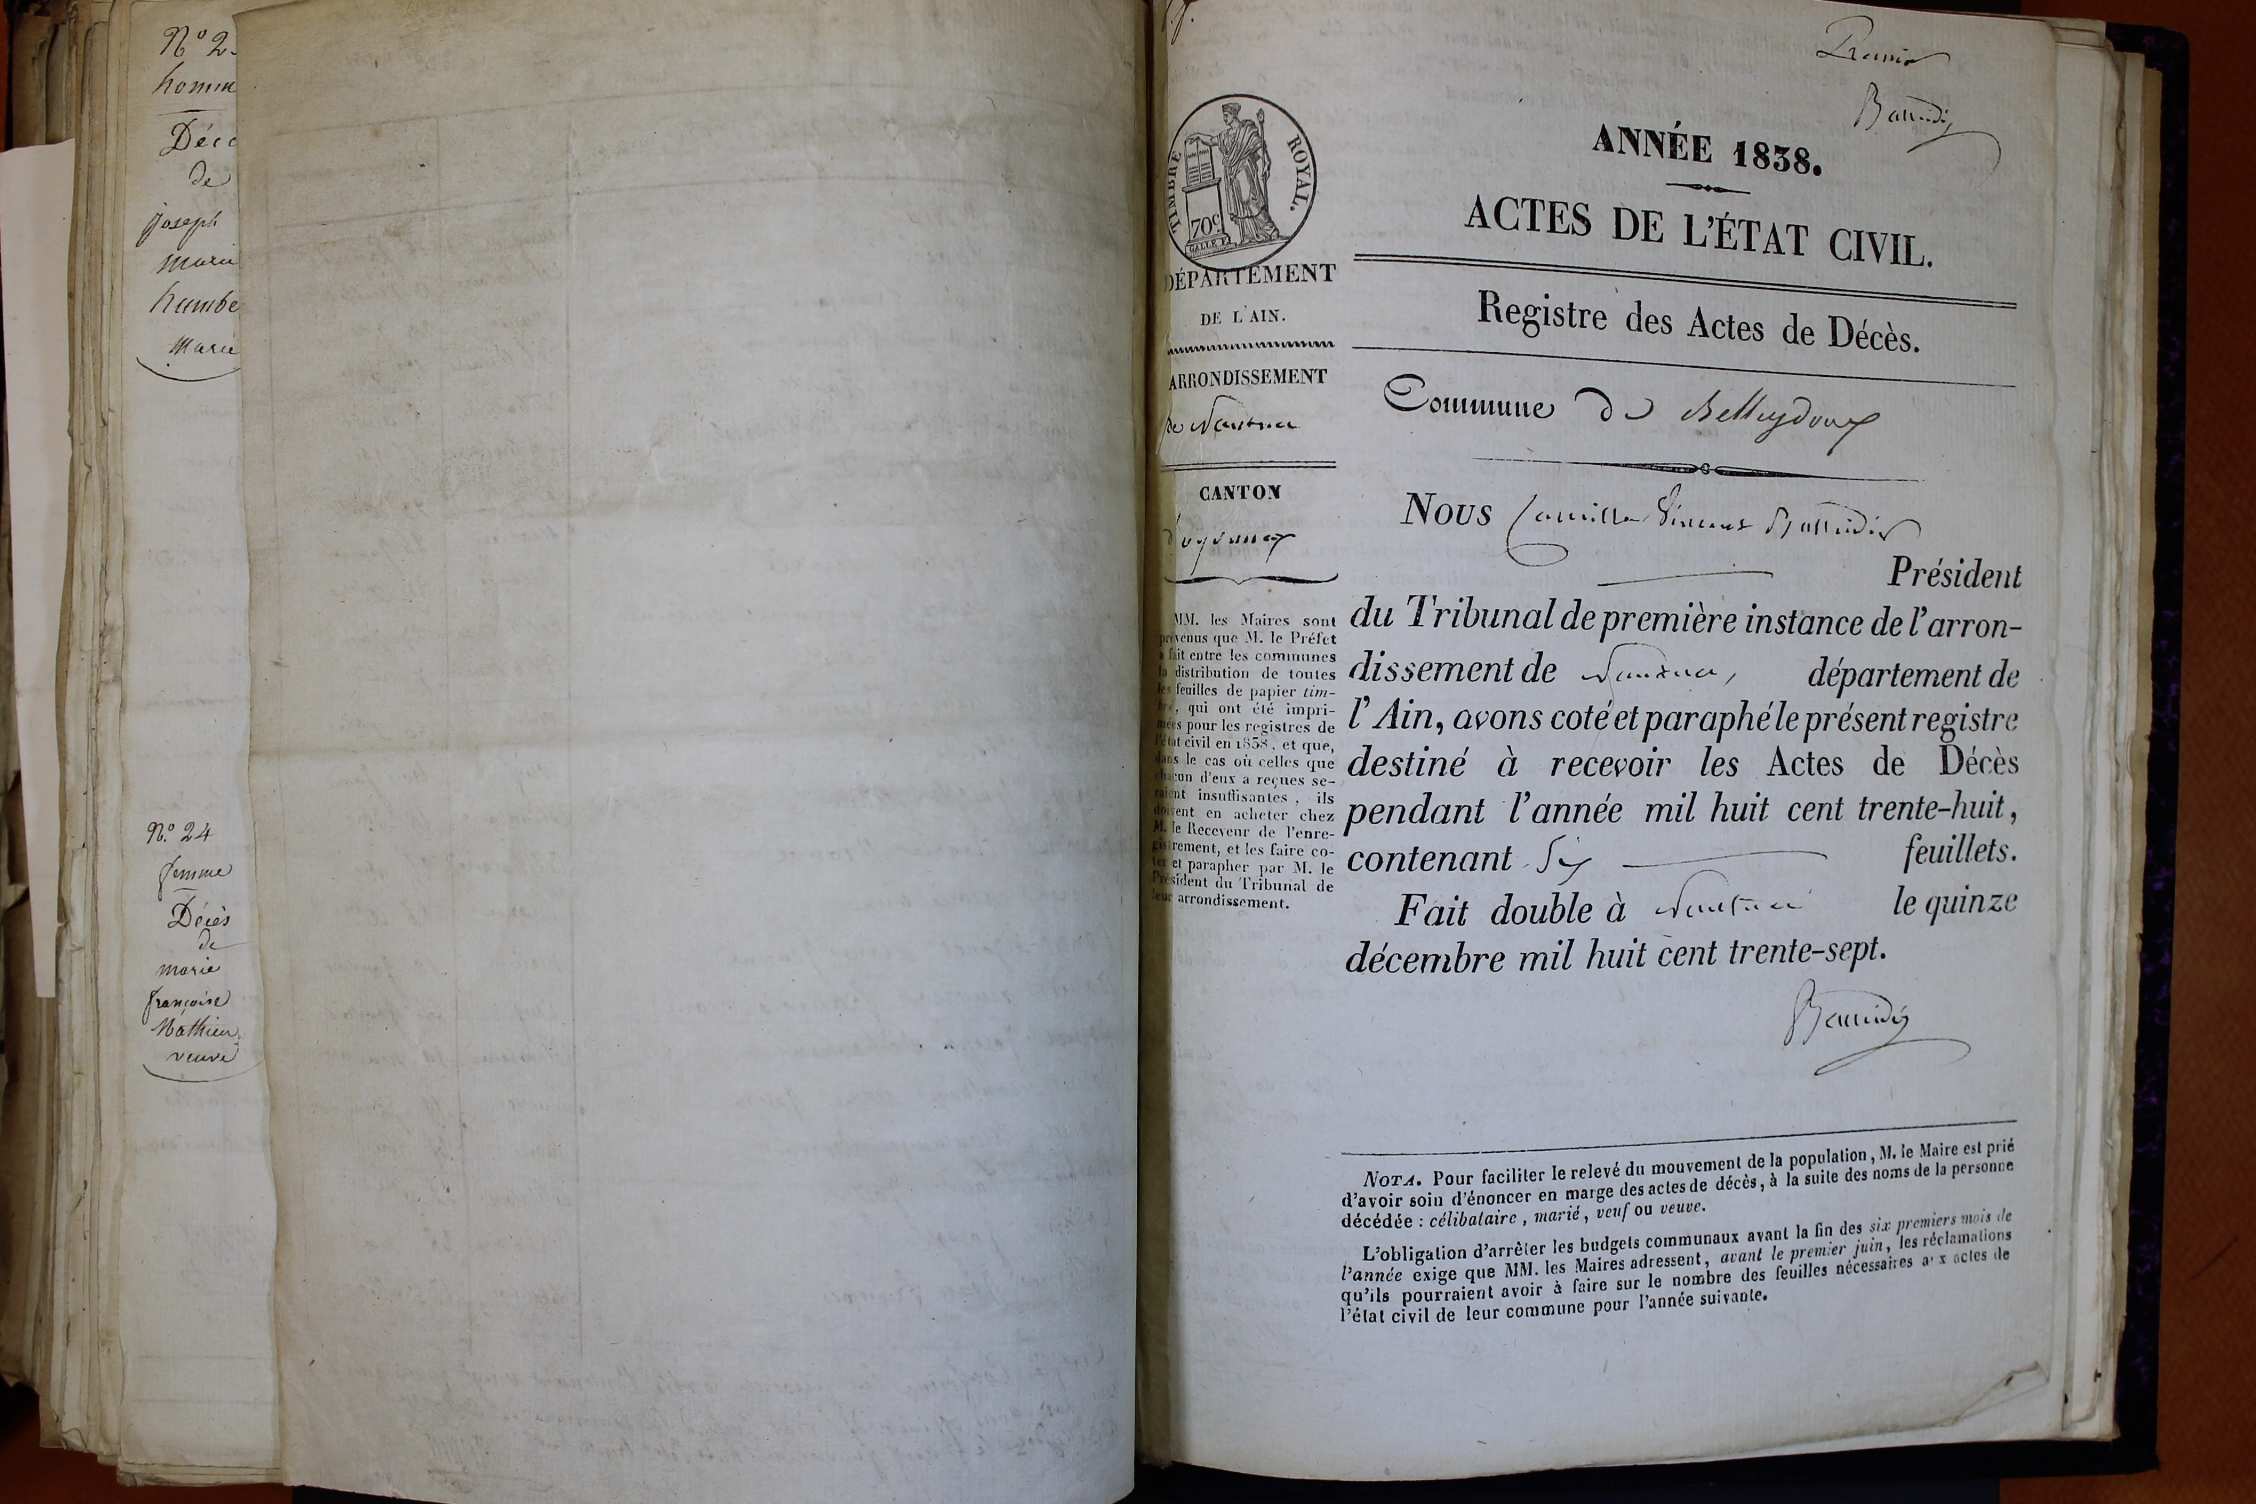 N° 2
homm
Déc
de
joseph
marie
humbe
marié
N.° 24
femme
Décès
de
marie
françoise
Mathieu
veuve
Premier
ANNÉE 1838.
ACTES DE L'ÉTAT CIVIL.
Registre des Actes de Décès.
Commune de Belleydoux
TIMBRE ROYAL.
70c.
GALLE F.
DÉPARTEMENT
DE L'AIN.
ARRONDISSEMENT
de Nantua
CANTON
d'oyonnax
MM. les Maires sont
prévenus que M. le Préfet
a fait entre les communes
la distribution de toutes
les feuilles de papier tim-
bré, qui ont été impri-
mées pour les registres de
l'état civil en 1838, et que,
dans le cas où celles que
chacun d'eux a reçues se-
raient insuffisantes, ils
doivent en acheter chez
M. le Receveur de l'enre-
gistrement, et les faire co-
ter et parapher par M. le
Président du Tribunal de
leur arrondissement.
Nous Camille Vincent
Président
du Tribunal de première instance de l'arron-
dissement de Nantua, département de
l'Ain, avons coté et paraphé le présent registre
destiné à recevoir les Actes de Décès
pendant l'année mil huit cent trente-huit,
contenant Six feuillets.
Fait double à Nantua le quinze
décembre mil huit cent trente-sept.
NOTA. Pour faciliter le relevé du mouvement de la population, M. le Maire est prié
d'avoir soin d'énoncer en marge des actes de décès, à la suite des noms de la personne
décédée : célibataire, marié, veuf ou veuve.
L'obligation d'arrêter les budgets communaux avant la fin des six premiers mois de
l'année exige que MM. les Maires adressent, avant le premier juin, les réclamations
qu'ils pourraient avoir à faire sur le nombre des feuilles nécessaires aux actes de
l'état civil de leur commune pour l'année suivante.